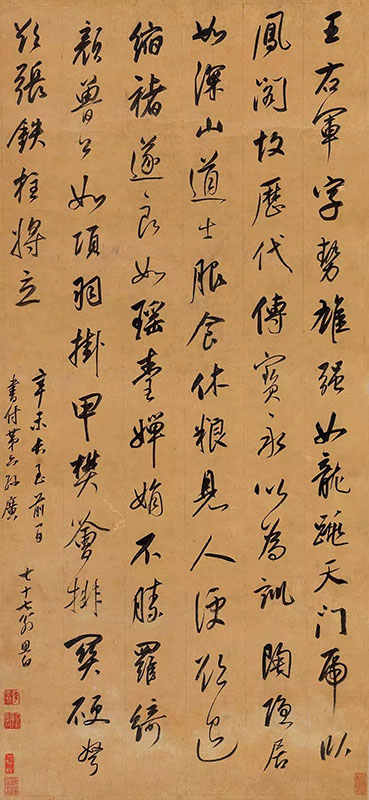 王右軍字勢雄强如龍跳天門虎臥
鳳閣故歷代傳寶永以為訓陶隱居
如深山道士服食休粮見人便欲退
縮褚遂良如瑶臺嬋娟不勝羅綺
顏魯公如項羽掛甲樊噲排突硬弩
欲張鉄柱將立
辛未長至前一日
書付第六孫廣
七十七翁思白